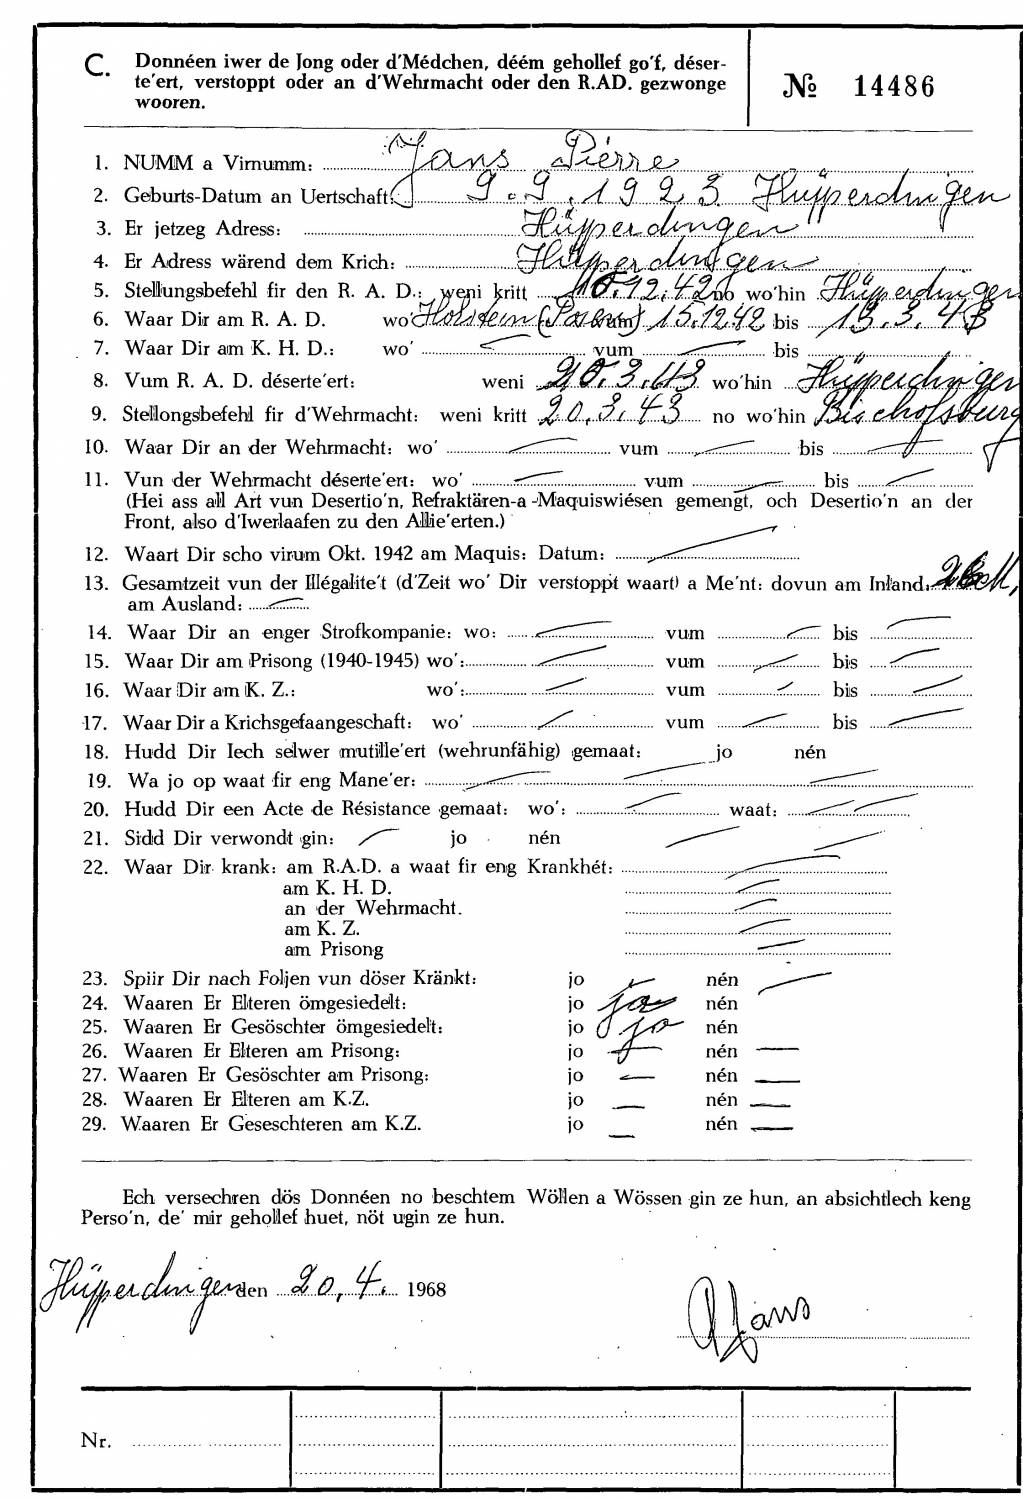 C. Donnéen iwer de Jong oder d'Médchen, déém gehollef go'f, déser-
te'ert, verstoppt oder an d'Wehrmacht oder den R.AD. gezwonge
wooren.
№ 14486
1. NUMM a Virnumm: Jans Pierre
2. Geburts-Datum an Uertschaft: 9.9.1923 Hüpperdingen
3. Er jetzeg Adress: Hüpperdingen
4. Er Adress wärend dem Krich: Hüpperdingen
5. Stellungsbefehl fir den R. A. D.: weni kritt 10.12.42 no wo'hin Hüpperdingen
6. Waar Dir am R. A. D. wo' Holstein (Posen) vum 15.12.42 bis 19.3.43
7. Waar Dir am K. H. D.: wo' vum bis
8. Vum R. A. D. déserte'ert: weni 20.3.43 wo'hin Hüpperdingen
9. Stellongsbefehl fir d'Wehrmacht: weni kritt 20.3.43 no wo'hin Bischofsburg
10. Waar Dir an der Wehrmacht: wo' vum bis
11. Vun der Wehrmacht déserte'ert: wo' vum bis
(Hei ass all Art vun Desertio'n, Refraktären-a -Maquiswiésen gemengt, och Desertio'n an der
Front, also d'Iwerlaafen zu den Allie'erten.)
12. Waart Dir scho virum Okt. 1942 am Maquis: Datum:
13. Gesamtzeit vun der Illégalite't (d'Zeit wo' Dir verstoppt waart) a Me'nt: dovun am Inland:
am Ausland:
14. Waar Dir an enger Strofkompanie: wo: vum bis
15. Waar Dir am Prisong (1940-1945) wo': vum bis
16. Waar Dir am K. Z.: wo': vum bis
17. Waar Dir a Krichsgefaangeschaft: wo' vum bis
18. Hudd Dir Iech selwer mutille'ert (wehrunfähig) gemaat: jo nén
19. Wa jo op waat fir eng Mane'er:
20. Hudd Dir een Acte de Résistance gemaat: wo': waat:
21. Sidd Dir verwondt gin: jo nén
22. Waar Dir krank: am R.A.D. a waat fir eng Krankhét:
am K. H. D.
an der Wehrmacht.
am K. Z.
am Prisong
23. Spiir Dir nach Foljen vun döser Kränkt: jo nén
24. Waaren Er Elteren ömgesiedelt: jo ja nén
25. Waaren Er Gesöschter ömgesiedelt: jo jo nén
26. Waaren Er Elteren am Prisong: jo nén
27. Waaren Er Gesöschter am Prisong: jo nén
28. Waaren Er Elteren am K.Z. jo nén
29. Waaren Er Geseschteren am K.Z. jo nén
Ech versechren dös Donnéen no beschtem Wöllen a Wössen gin ze hun, an absichtlech keng
Perso'n, de' mir gehollef huet, nöt ugin ze hun.
Hüpperdingen den 20.4. 1968
P Jans
Nr.